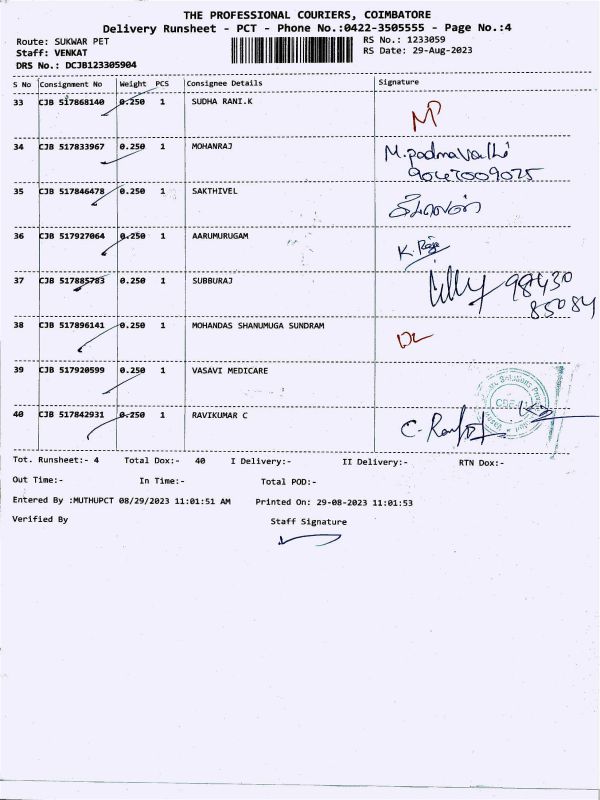 THE PROFESSIONAL COURIERS, COIMBATORE
Delivery Runsheet - PCT - Phone No.:0422-3505555 - Page No.:4
Route: SUKWAR PET
RS No.: 1233059
Staff: VENKAT
RS Date: 29-Aug-2023
DRS No.: DCJB123305904
S No Consignment No Weight PCS Consignee Details Signature
33 CJB 517868140 0.250 1 SUDHA RANI.K
34 CJB 517833967 0.250 1 MOHANRAJ M.padmavathi
9047009075
35 CJB 517846478 0.250 1 SAKTHIVEL
36 CJB 517927064 0.250 1 AARUMURUGAM K. Raja
37 CJB 517885783 0.250 1 SUBBURAJ 98430
85084
38 CJB 517896141 0.250 1 MOHANDAS SHANUMUGA SUNDRAM
39 CJB 517920599 0.250 1 VASAVI MEDICARE
40 CJB 517842931 0.250 1 RAVIKUMAR C
Tot. Runsheet:- 4 Total Dox:- 40 I Delivery:- II Delivery:- RTN Dox:-
Out Time:- In Time:- Total POD:-
Entered By :MUTHUPCT 08/29/2023 11:01:51 AM Printed On: 29-08-2023 11:01:53
Verified By Staff Signature